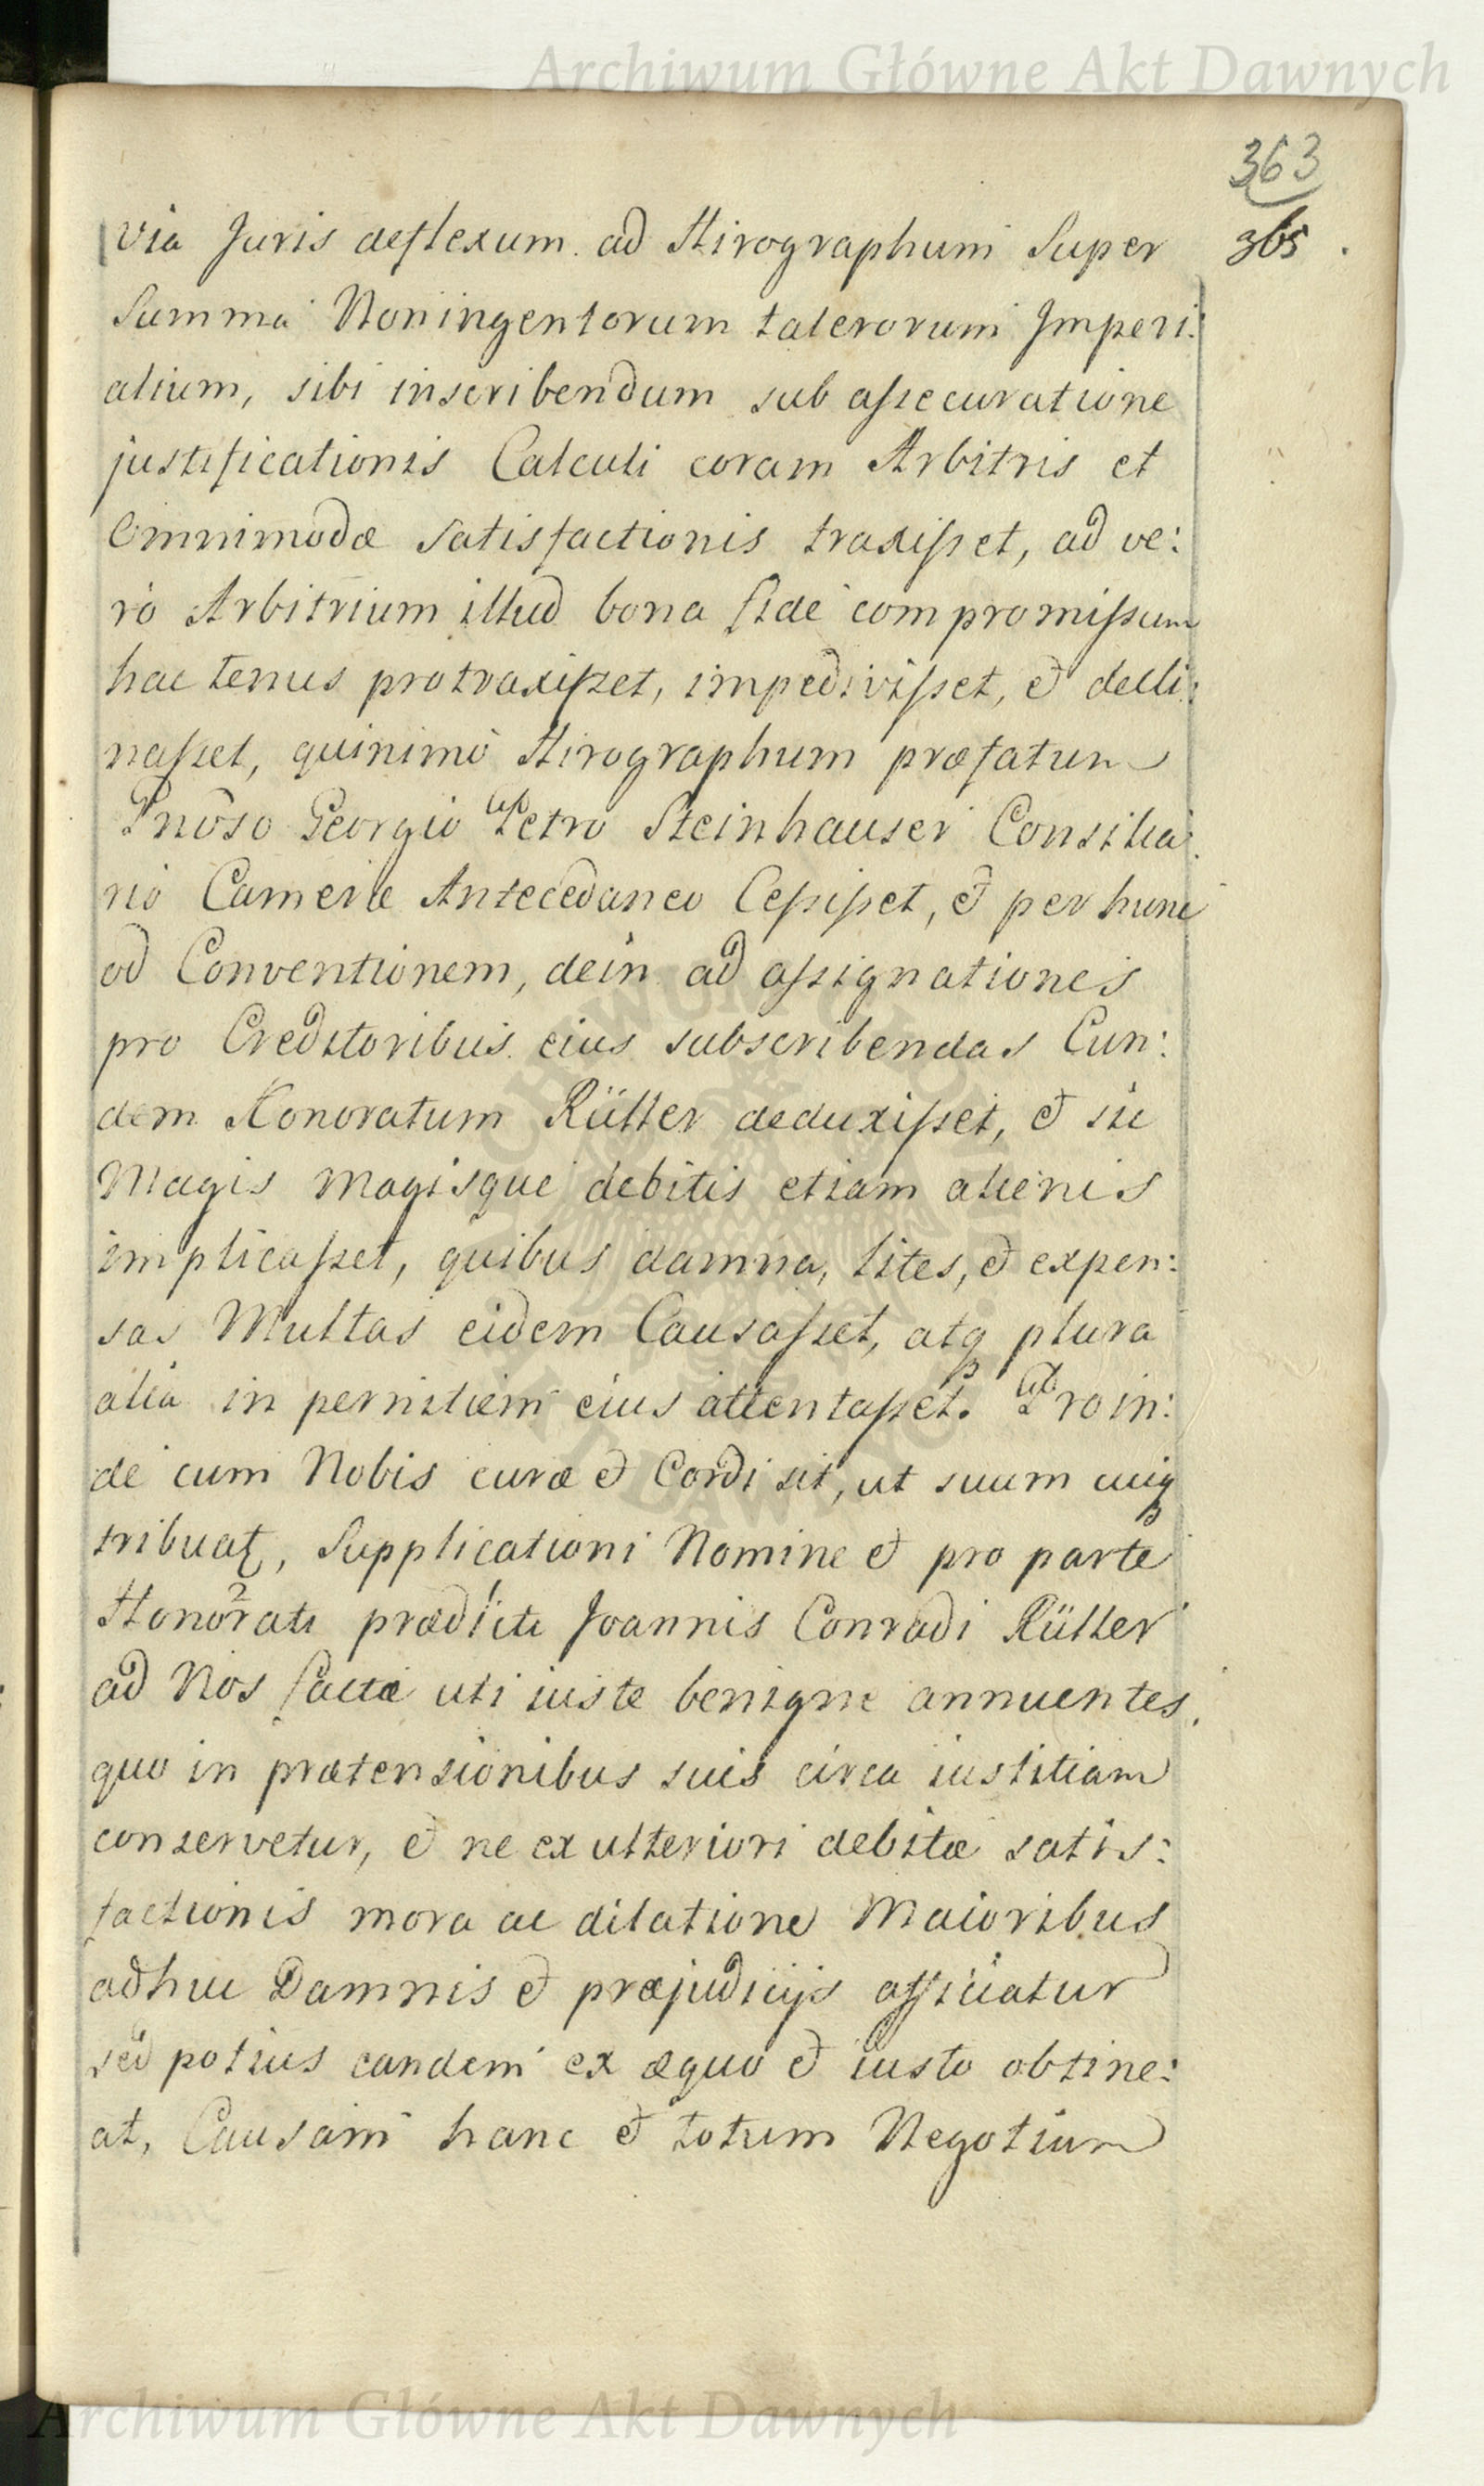 Archiwum Główne Akt Dawnych
363
365
via Juris deflexum ad Hirographum Super
Summa Noningentorum talerorum Imperi:
alium, sibi inscribendum sub aſsecuratione
justificationis Calculi coram Arbitris et
Omnimodæ satisfactionis traxiſset, ad ve:
ro Arbitrium illud bona fide compromiſsum
hactenus protraxiſset, impediviſset, et decli:
naſset, quinimo Hirographum præfatum
Gnoso Georgio Petro Steinhauser Consilia:
rio Cameræ Antecedaneo Ceſsiſset, et per hunc
ad Conventionem, dein ad aſsignationes
pro Creditoribus eius subscribendas Eun:
dem Honoratum Rütter deduxiſset, et sic
Magis magisque debitis etiam alienis
implicaſset, quibus damna, lites, et expen:
sas Multas eidem Causaſset, atq plura
alia in pernitiem eius attentaſset. Proin:
de cum Nobis curæ et Cordi sit, ut suum cuiq
tribuat, Supplicationi Nomine et pro parte
Honorati prædicti Joannis Conradi Rütter
ad Nos factæ uti iuste benigne annuentes,
quo in prætensionibus suis circa iustitiam
conservetur, et ne ex ulteriori debitæ satis:
factionis mora ac dilatione Maioribus
adhuc Damnis et præjudicijs afficiatur
sed potius eandem ex æquo et iusto obtine:
at, Causam hanc et totum Negotium
Archiwum Główne Akt Dawnych